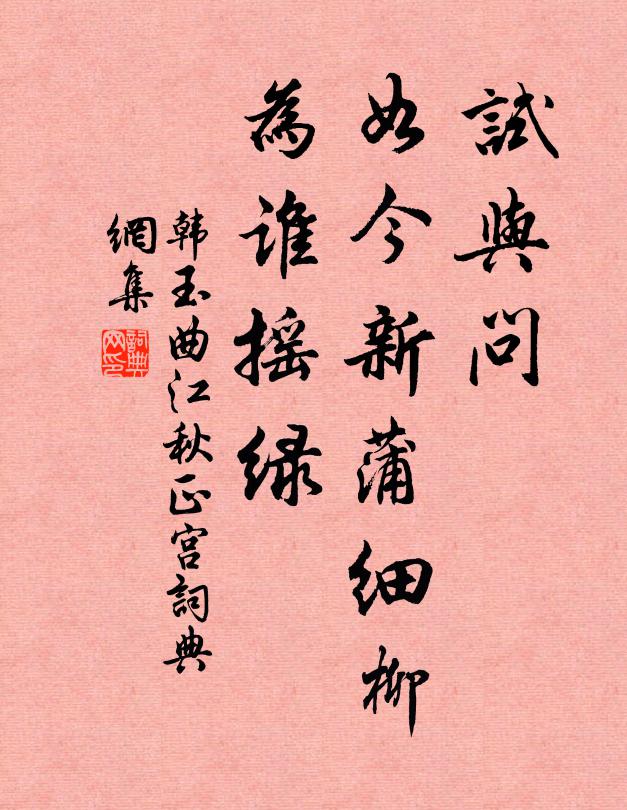 試與問
如今新蒲細柳
為誰摇緑
韩玉曲江秋正宫詞典
網集
詞典
网印